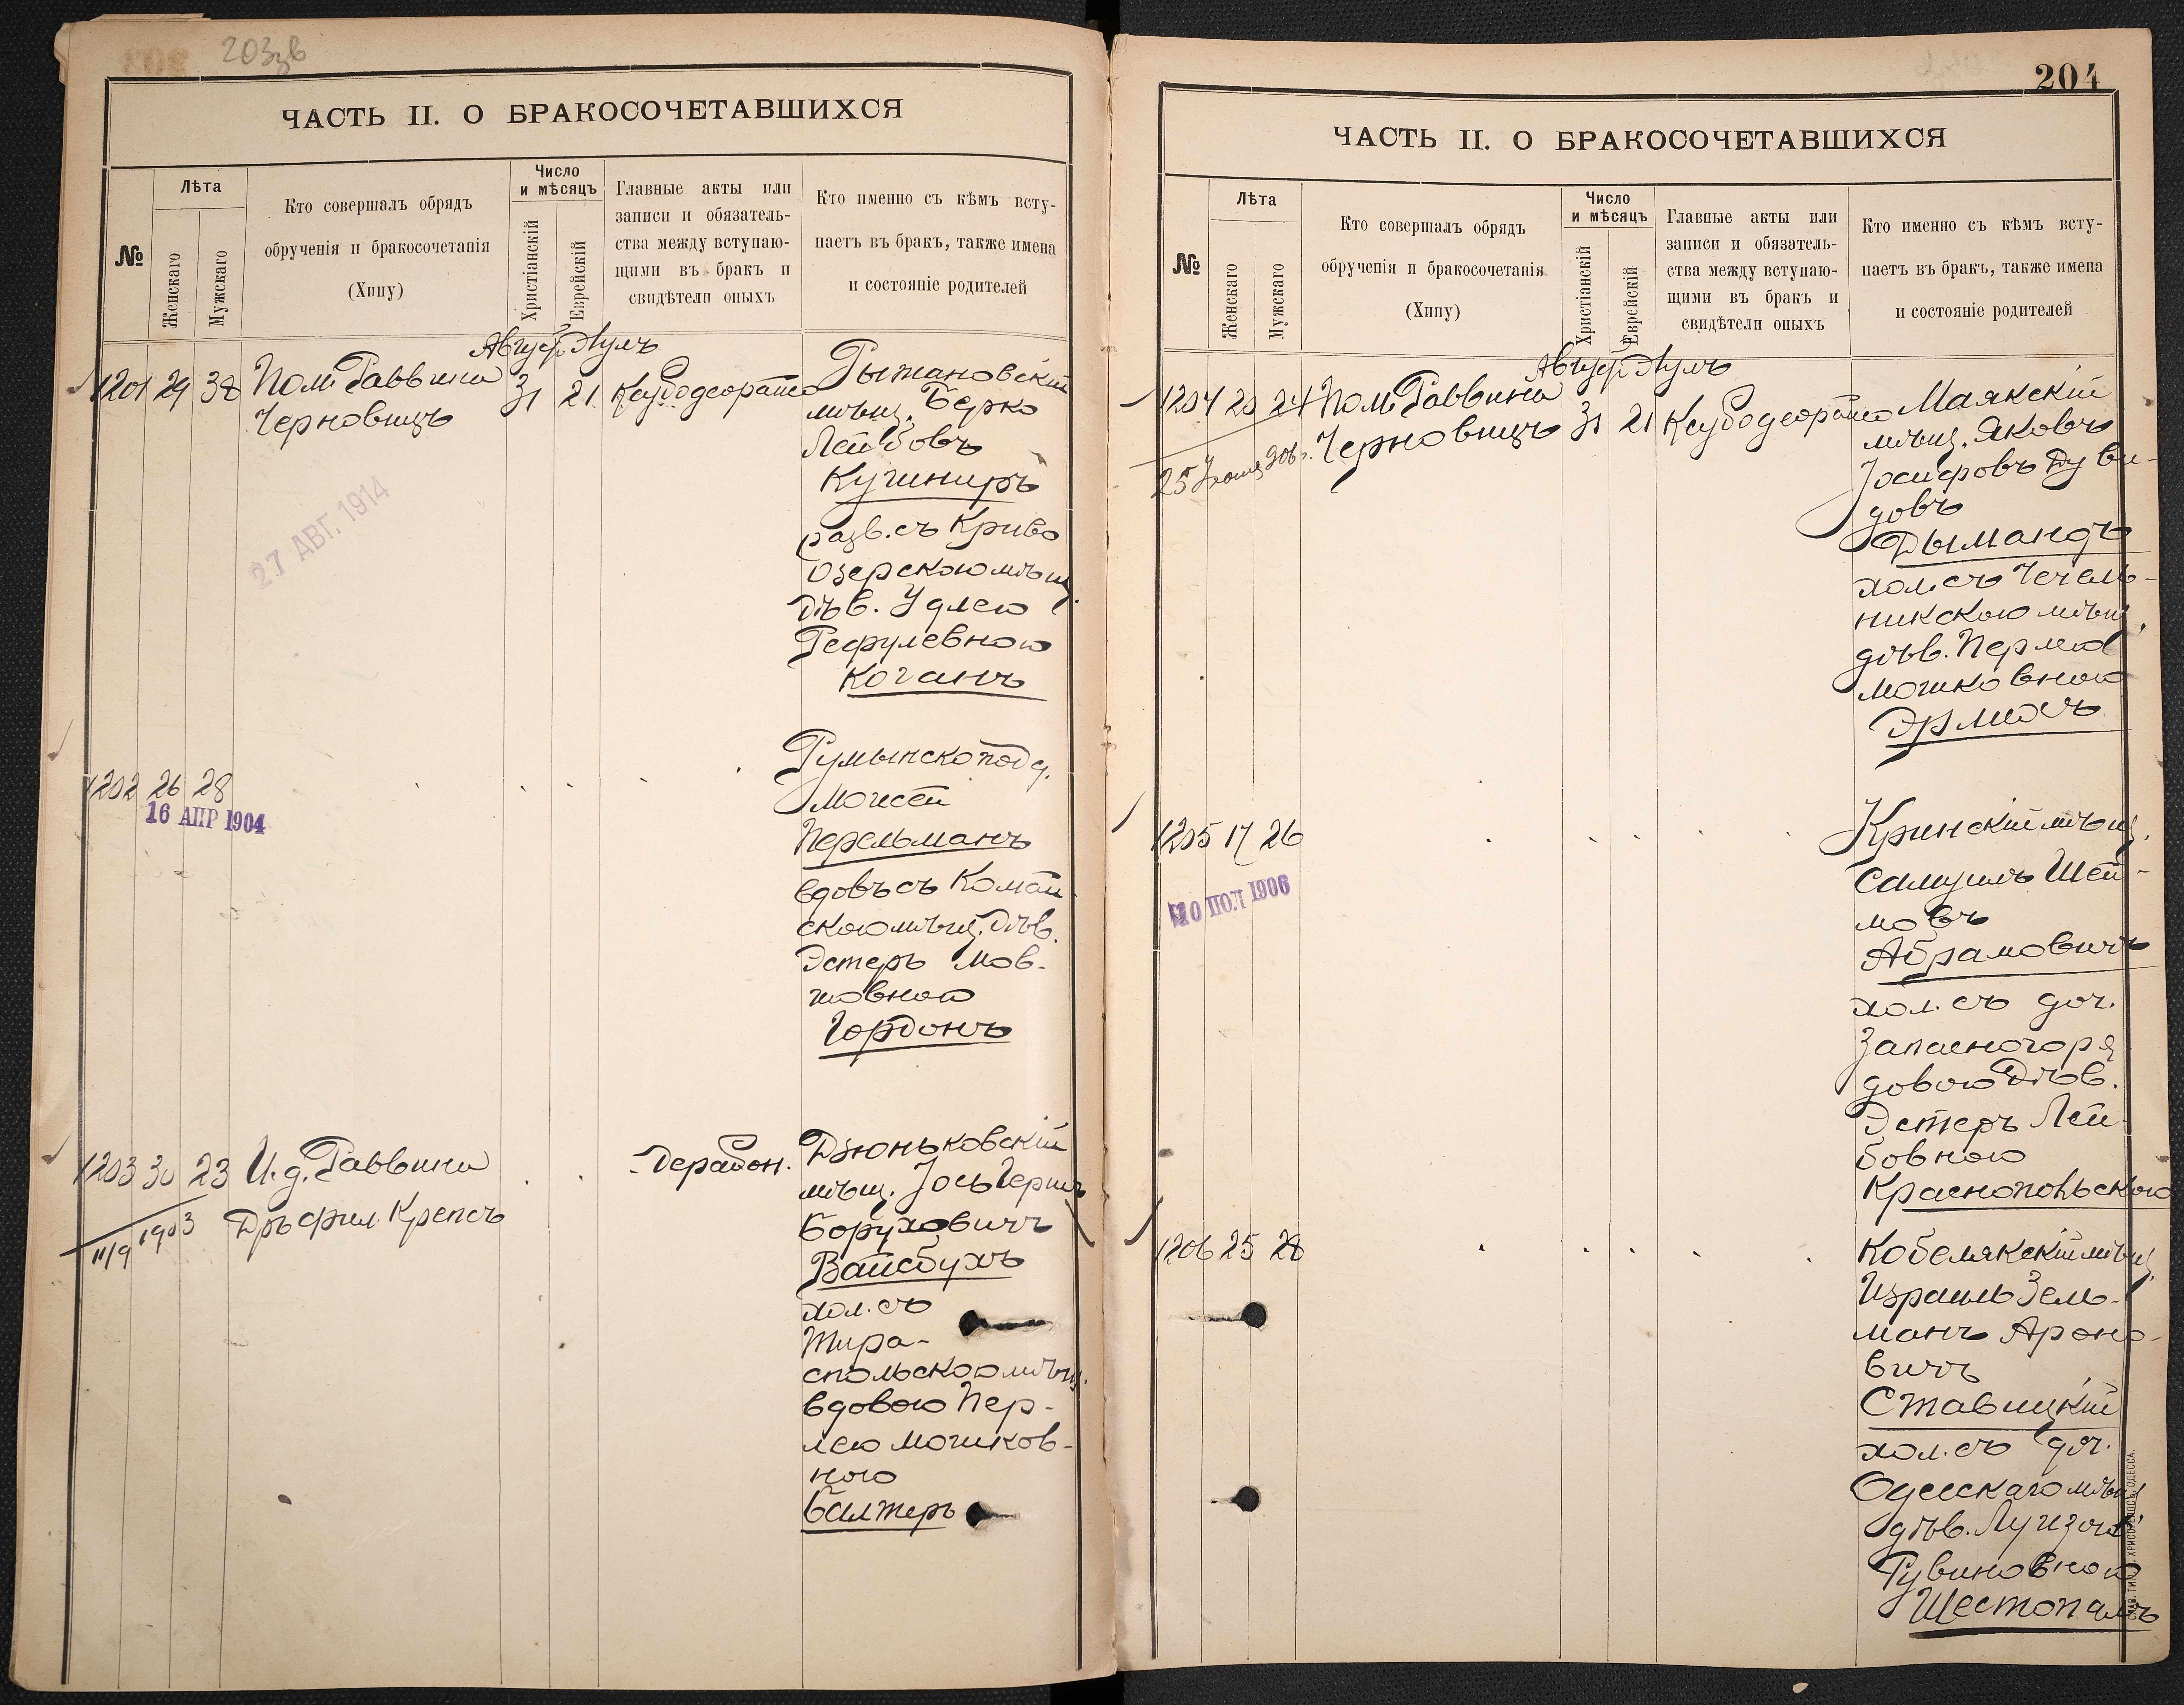 203зв
ЧАСТЬ II. О БРАКОСОЧЕТАВШИХСЯ
№
Лѣта
Женскаго
Мужскаго
Кто совершалъ обрядъ
обрученія и бракосочетанія
(Хипу)
Число
и мѣсяцъ
Христіанскій
Еврейскій
Главные акты или
записи и обязатель-
ства между вступаю-
щими въ бракъ и
свидѣтели оныхъ
Кто именно съ кѣмъ всту-
паетъ въ бракъ, также имена
и состояніе родителей
Август Элулъ
1201 29 38 Пом. Раввина 31 21
Черновицъ
27 АВГ. 1914
Рыжановскій
мѣщ. Берко
Лейбовъ
Кучиниръ
разв. съ Криво
озерскою мѣщ.
дѣв. Удлею
Рефулевною
Коганъ
1202 26 28
16 АПР 1904
Румынскоподд.
Мойсей
Перельманъ
вдовъ съ Коман
скою мѣщ. дѣв.
Эстеръ Мов-
шовною
Гордонъ
1203 30 23 И. д. Раввина
Дръ фил. Крепсъ
11/9 1903
Дерабон.
Дзюньковскій
мѣщ. Іось Герш
Боруховичъ
Вайсбухъ
хол. съ
Тира-
спольскою мѣщ.
вдовою Пер-
лею Мошков-
ною
Балтеръ
204
ЧАСТЬ II. О БРАКОСОЧЕТАВШИХСЯ
№
Лѣта
Женскаго
Мужскаго
Кто совершалъ обрядъ
обрученія и бракосочетанія
(Хипу)
Число
и мѣсяцъ
Христіанскій
Еврейскій
Главные акты или
записи и обязатель-
ства между вступаю-
щими въ бракъ и
свидѣтели оныхъ
Кто именно съ кѣмъ всту-
паетъ въ бракъ, также имена
и состояніе родителей
Август Элулъ
1204 20 24 Пом. Раввина 31 21
Черновицъ
Маякскій
мѣщ. Яковъ
Іосифовъ Дуви-
довъ
Дымандъ
хол. съ Чечель-
никскою мѣщ.
дѣв. Перлею
Мошковною
Эрлихъ
1205 17 26
10 ІЮЛ 1906
Кринскій мѣщ.
Самуилъ Шей-
мовъ
Абрамовичъ
хол. съ доч.
Запасного ря
дового дѣв.
Эстеръ Лей-
бовною
Краснопольскою
1206 25 28
Кобелякскій мѣщ.
Израиль Зель-
манъ Ароно-
вичъ
Ставицкій
хол. съ доч.
Одесскаго мѣщ.
дѣв. Луизою
Рувиновною
Шестопалъ